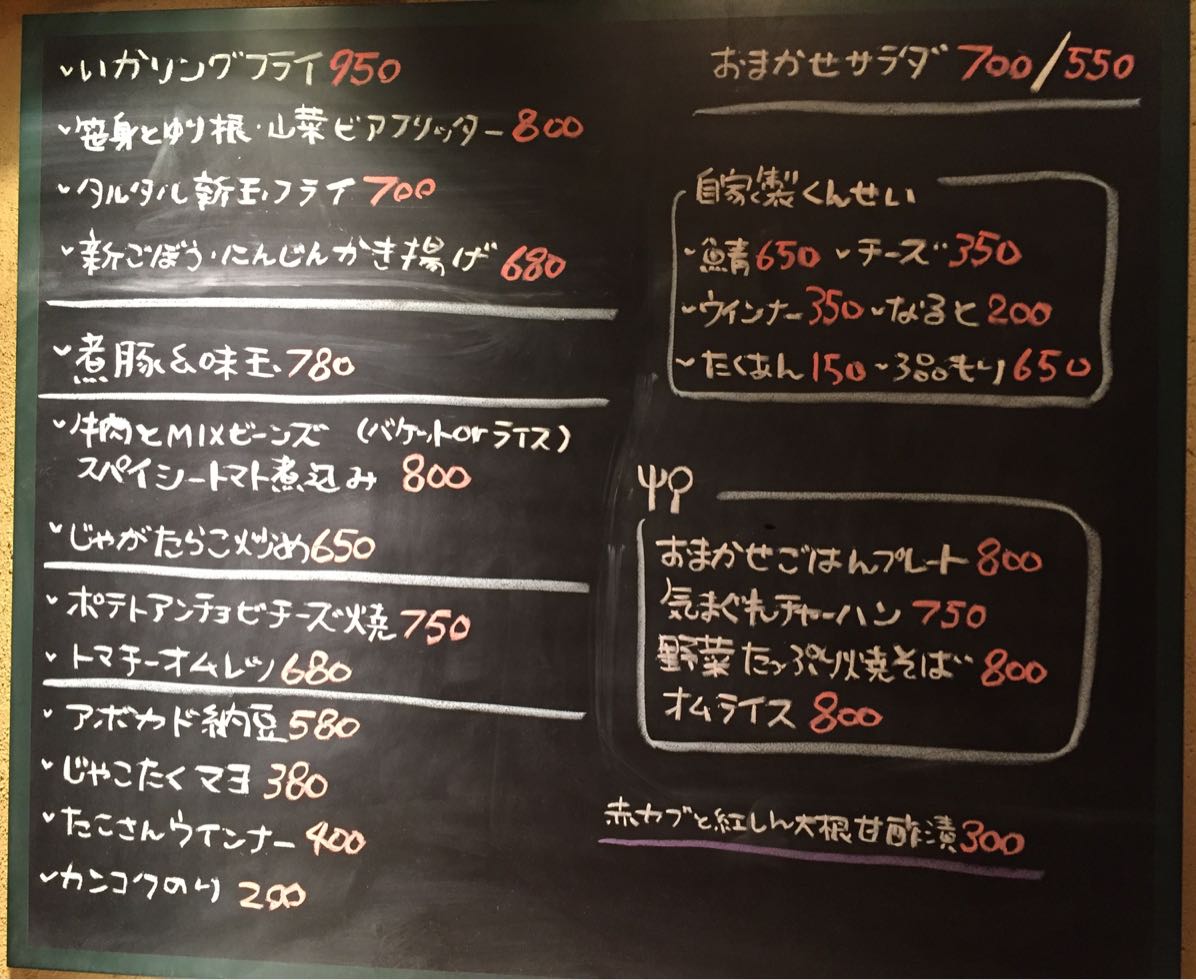 いかリングフライ 950
笹身とゆり根・山菜ビアフリッター 800
タルタル新玉フライ 700
新ごぼう・にんじんかき揚げ 680
煮豚&味玉 780
牛肉とMIXビーンズ (バケットorライス)
スパイシートマト煮込み 800
じゃがたらこ炒め 650
ポテトアンチョビチーズ焼 750
トマチーオムレツ 680
アボカド納豆 580
じゃこたくマヨ 380
たこさんウインナー 400
カンコクのり 200
おまかせサラダ 700/550
自家製くんせい
鯖 650 チーズ 350
ウインナー 350 なると 200
たくあん 150 3品もり 650
おまかせごはんプレート 800
気まぐれチャーハン 750
野菜たっぷり焼そば 800
オムライス 800
赤カブと紅しん大根甘酢漬 300